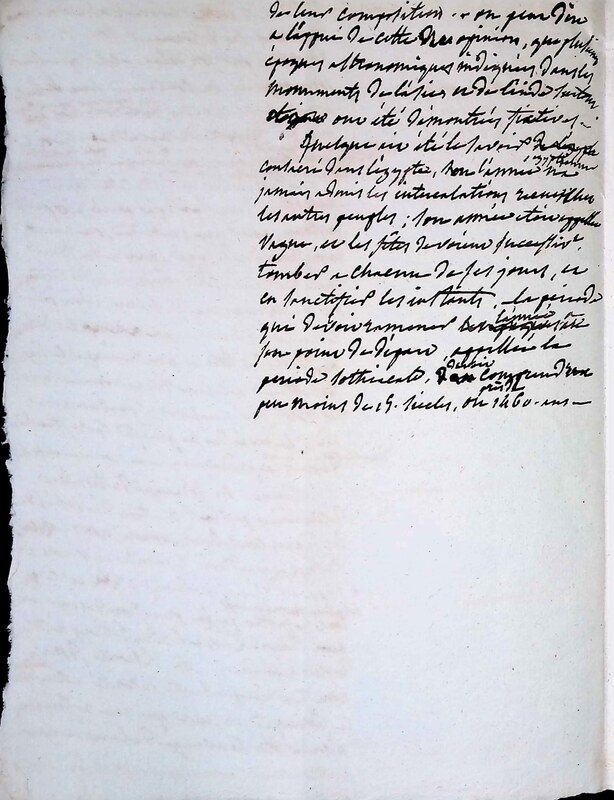 de leur composition. on peut dire
a l'appui de cette opinion, que plusieurs
époques astronomiques indiquées dans les
monuments de l'asie et de l'inde surtout
ont été démontrées fictives.
Quelque ait été le savoir
concentré dans l'egypte, son année n'a
jamais admis les intercalations
les autres peuples; son année etoit appellée
vague, et les fêtes devoient successivt.
tomber a chacun de ses jours, et
en sanctifier les instants. la période
qui devoit ramener l'année à
son point de départ, appellée la
periode sothiacale, devoit comprendre
peu moins de 15. siècles, ou 1460. ans